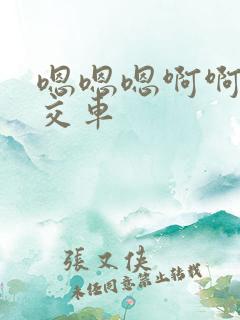 嗯嗯嗯啊啊
交车
張又侠
未经同意禁止转载